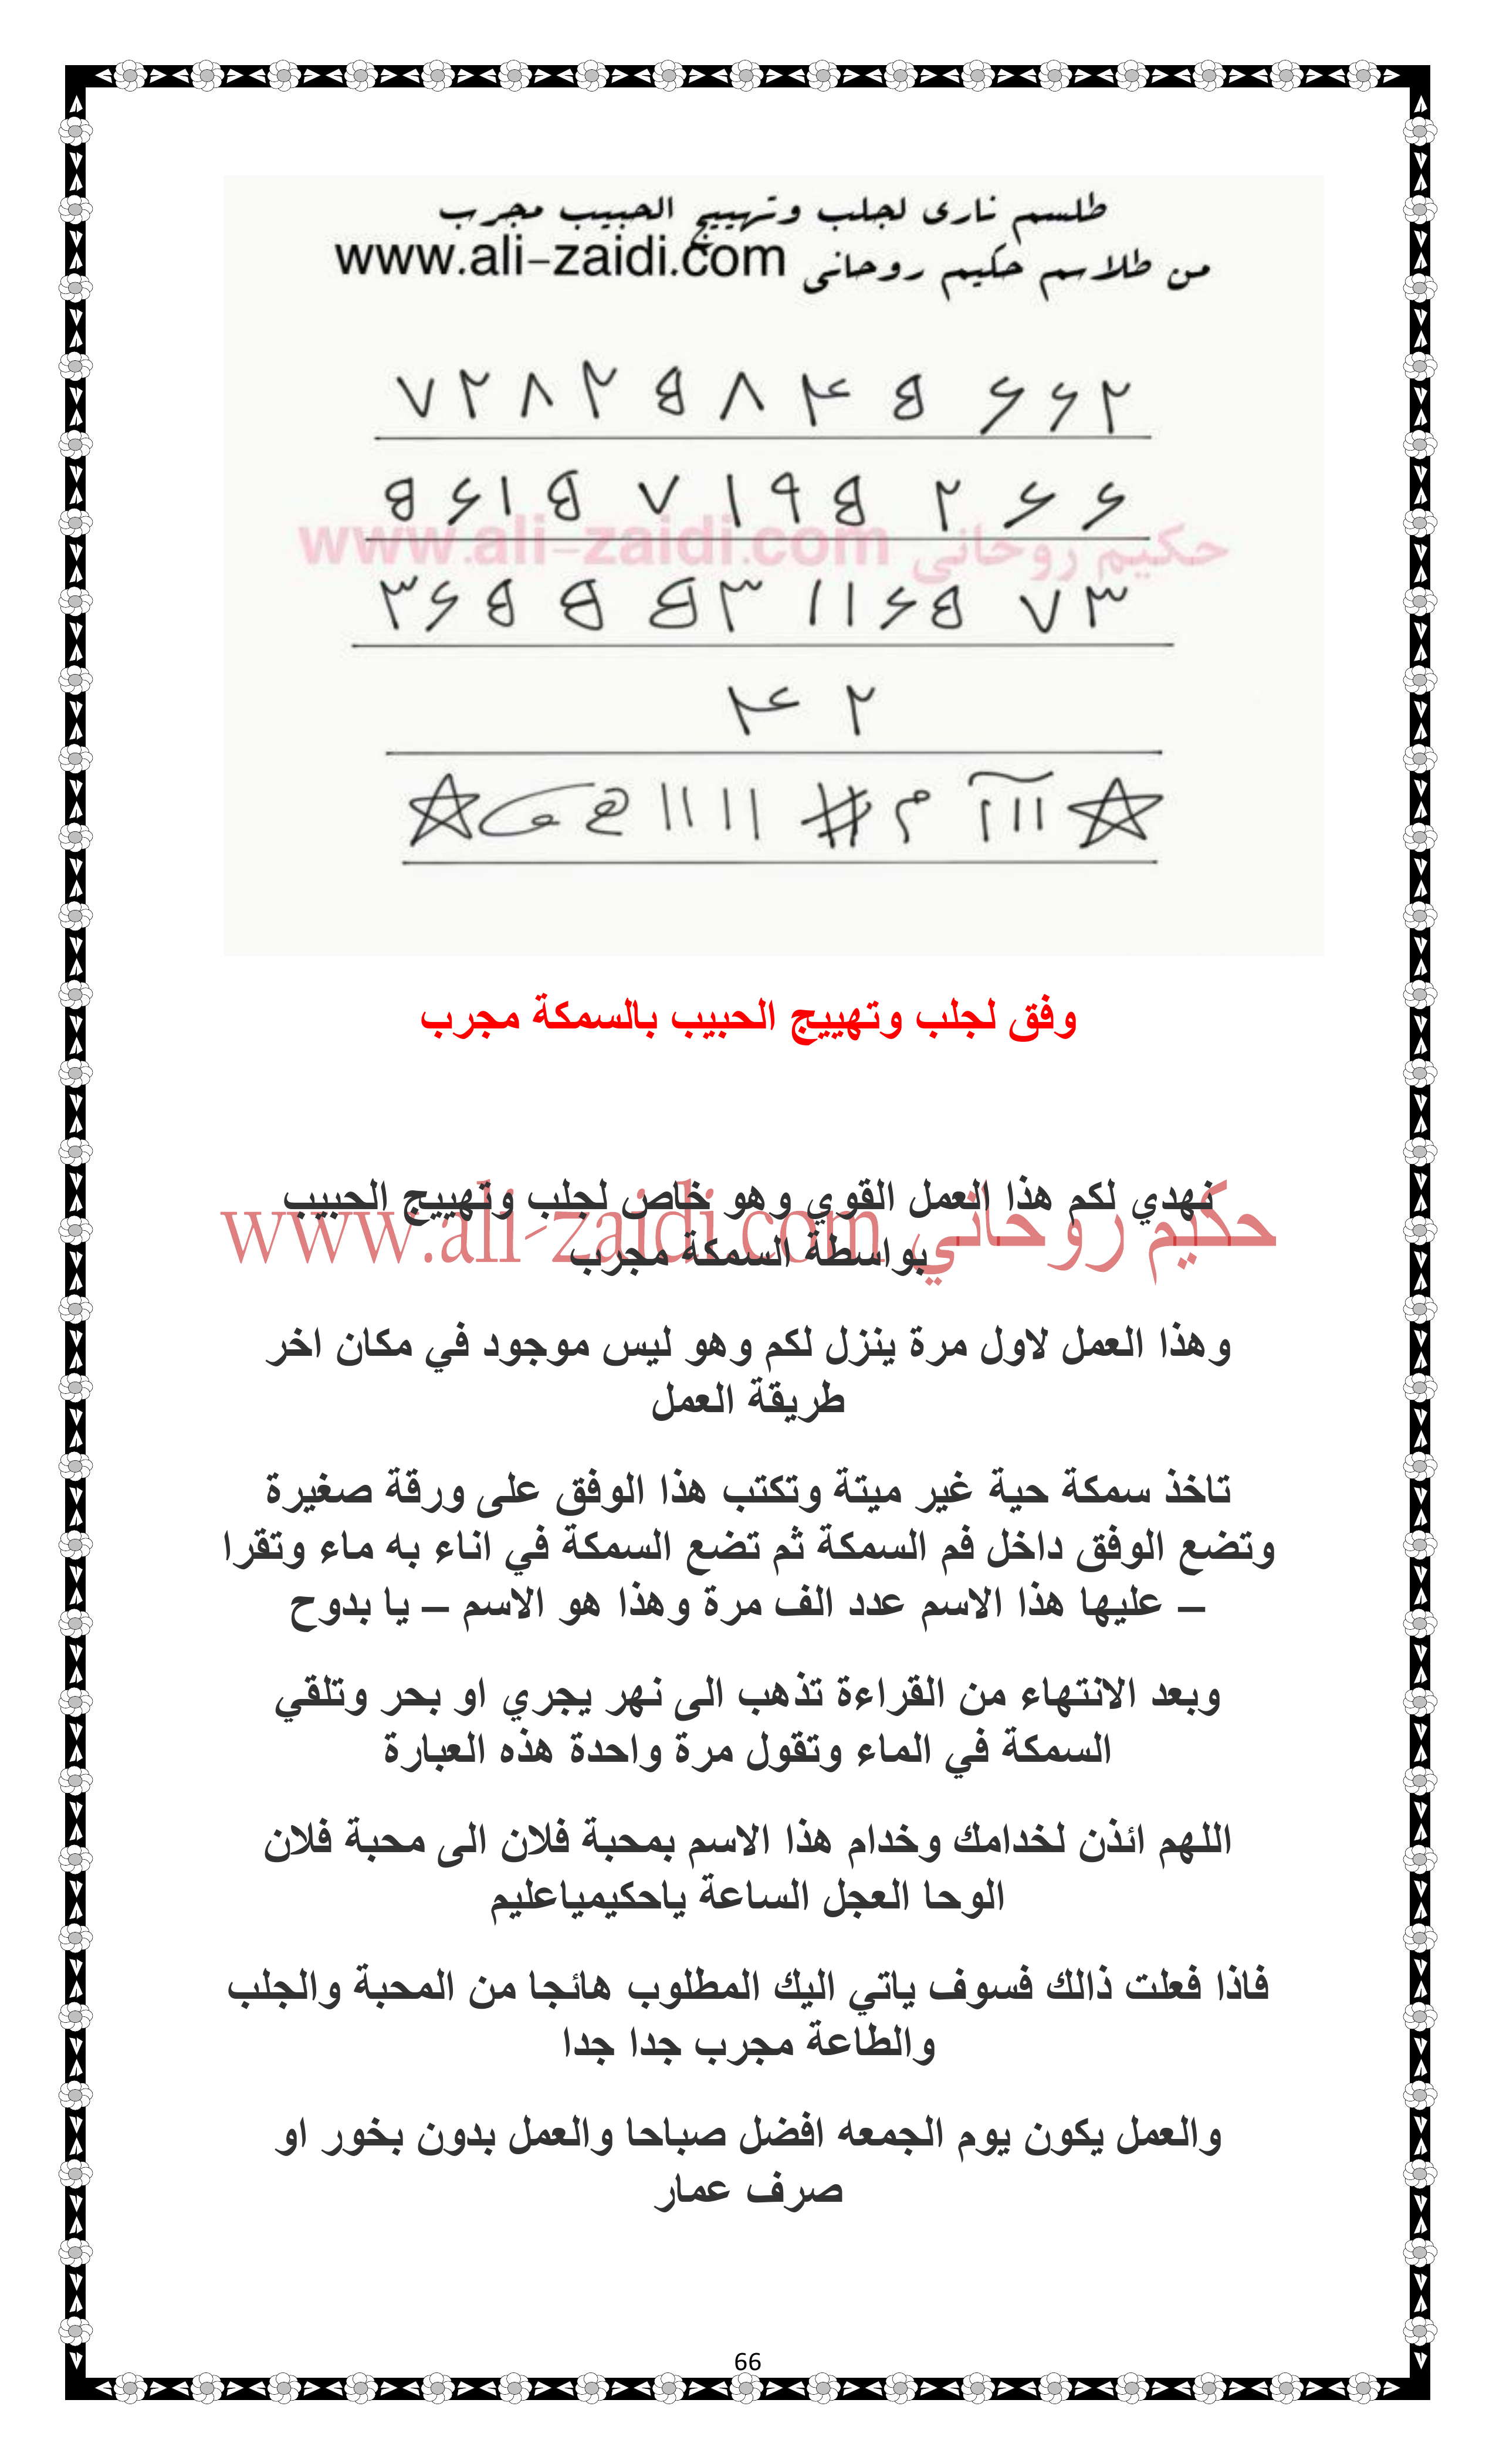 طلسم نارى لجلب وتهييج الحبيب مجرب
من طلاسم حكيم روحانى www.ali-zaidi.com
۷۲۸۲B۸۴B۶۶۲
B۶۱B۷۱۹B۲۶۶
۳۶BBB۳۱۱۶B۷۳
۴۲
حكيم روحانى www.ali-zaidi.com
وفق لجلب وتهييج الحبيب بالسمكة مجرب
نهدي لكم هذا العمل القوي وهو خاص لجلب وتهييج الحبيب
بواسطة السمكة مجرب
حكيم روحاني www.ali-zaidi.com
وهذا العمل لاول مرة ينزل لكم وهو ليس موجود في مكان اخر
طريقة العمل
تاخذ سمكة حية غير ميتة وتكتب هذا الوفق على ورقة صغيرة
وتضع الوفق داخل فم السمكة ثم تضع السمكة في اناء به ماء وتقرا
– عليها هذا الاسم عدد الف مرة وهذا هو الاسم – يا بدوح
وبعد الانتهاء من القراءة تذهب الى نهر يجري او بحر وتلقي
السمكة في الماء وتقول مرة واحدة هذه العبارة
اللهم ائذن لخدامك وخدام هذا الاسم بمحبة فلان الى محبة فلان
الوحا العجل الساعة ياحكيمياعليم
فاذا فعلت ذالك فسوف ياتي اليك المطلوب هائجا من المحبة والجلب
والطاعة مجرب جدا جدا
والعمل يكون يوم الجمعه افضل صباحا والعمل بدون بخور او
صرف عمار
66